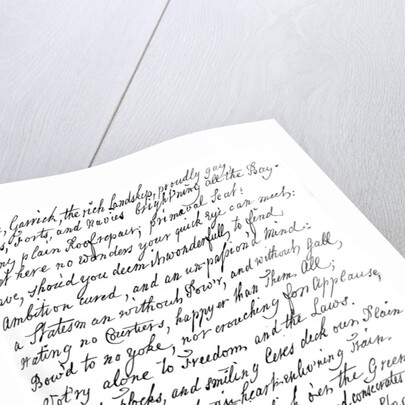 Garrick, the rich Landskip, proudly gay,
Forts, and Navies bright'ning all the Bay.
my plain Roof repair, primæval Seat!
here no wonders your quick Eye can meet;
should you deem it wonderfull, to find
Ambition cured, and an un-passion'd Mind;
a Statesman without Pow'r, and without Gall,
Hating no Courtiers, happyer than Them All;
Bow'd to no yoke, nor crouching for Applause,
Vot'ry alone to Freedom and the Laws.
Flocks, and smiling Ceres deck our Plain
heart-enlivening Train.
o'er the Green
consecrates